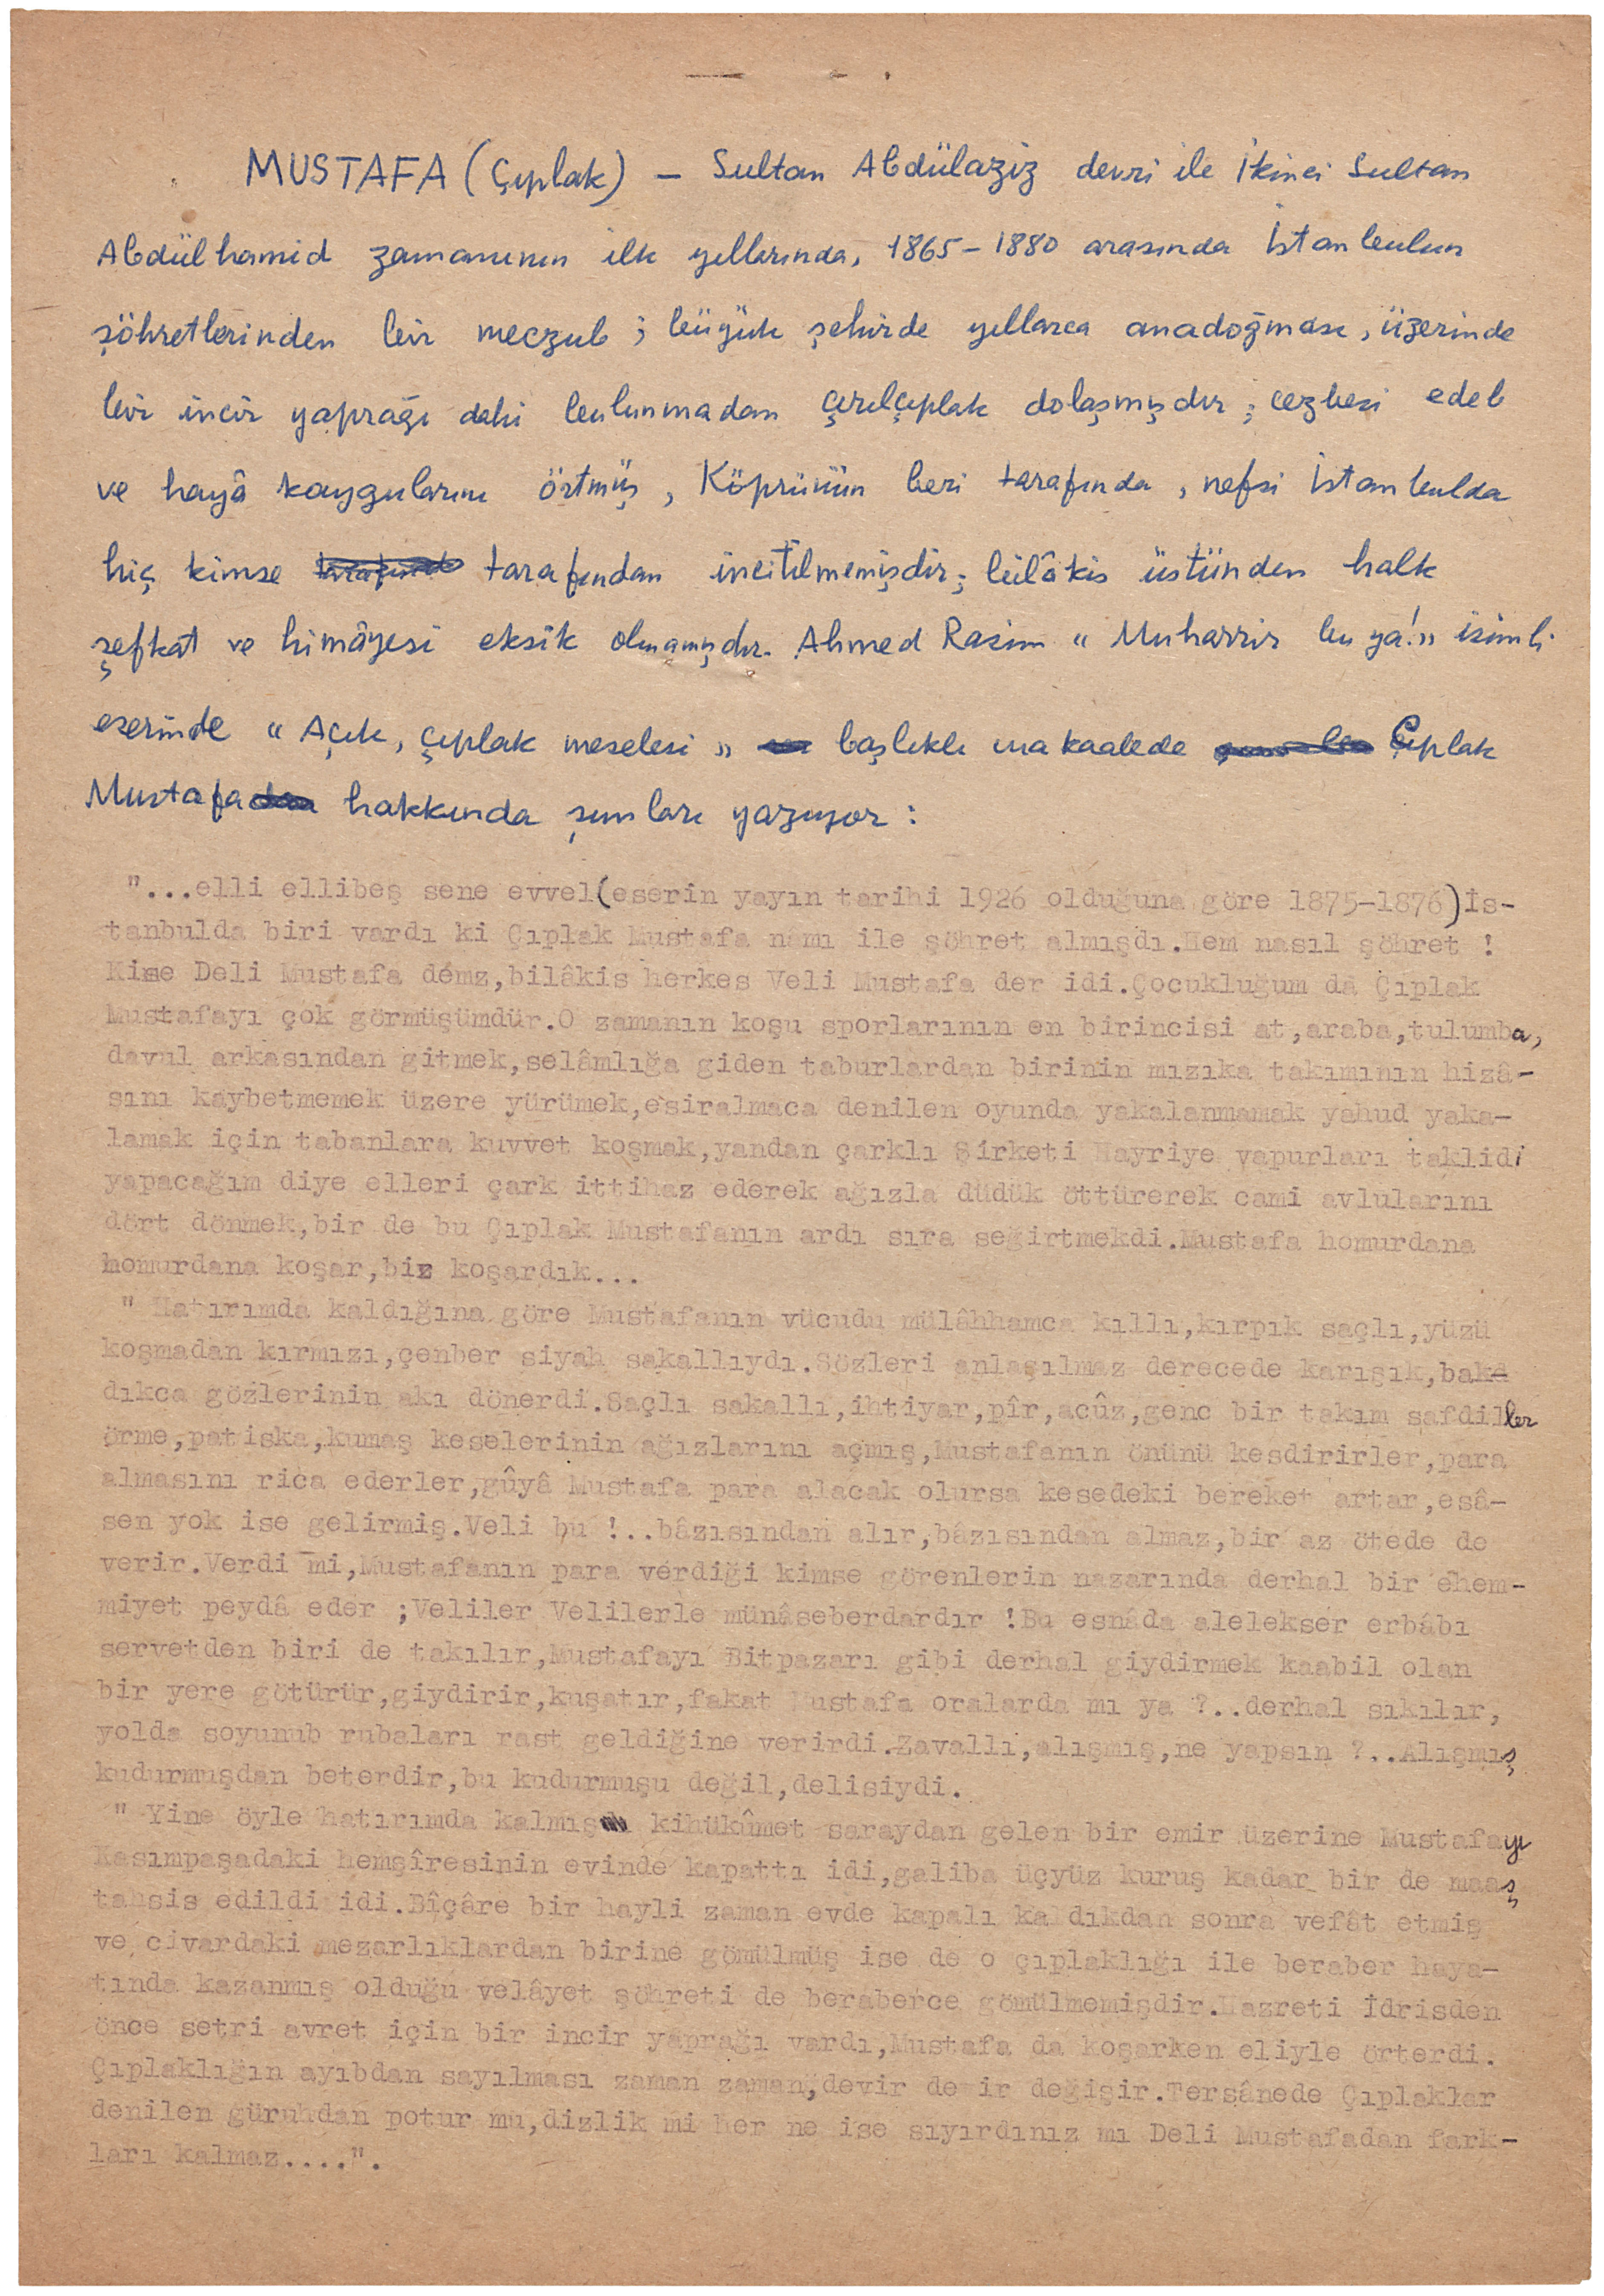 MUSTAFA (Çıplak) – Sultan Abdülaziz devri ile İkinci Sultan
Abdülhamid zamanının ilk yıllarında, 1865-1880 arasında İstanbulun
şöhretlerinden bir meczub ; büyük şehirde yıllarca anadoğması, üzerinde
bir incir yaprağı dahi bulunmadan çırılçıplak dolaşmışdır ; cezbesi edeb
ve hayâ kaygularını örtmüş, Köprünün beri tarafında, nefsi İstanbulda
hiç kimse tarafından incitilmemişdir; bilâkis üstünden halk
şefkat ve himâyesi eksik olmamışdır. Ahmed Rasim « Muharrir bu ya!» isimli
eserinde « Açık, çıplak meselesi » başlıklı makaalede Çıplak
Mustafa hakkında şunları yazıyor :
"...elli ellibeş sene evvel(eserin yayın tarihi 1926 olduğuna göre 1875-1876)İs-
tanbulda biri vardı ki Çıplak Mustafa namı ile şöhret almışdı.Hem nasıl şöhret !
Kimse Deli Mustafa démz,bilâkis herkes Veli Mustafa der idi.Çocukluğum da Çıplak
Mustafayı çok görmüşümdür.O zamanın koşu sporlarının en birincisi at,araba,tulumba,
davul arkasından gitmek,selâmlığa giden taburlardan birinin mızıka takımının hizâ-
sını kaybetmemek üzere yürümek,esiralmaca denilen oyunda yakalanmamak yahud yaka-
lamak için tabanlara kuvvet koşmak,yandan çarklı Şirketi Hayriye vapurları taklidi
yapacağım diye elleri çark ittihaz ederek ağızla düdük öttürerek cami avlularını
dört dönmek,bir de bu Çıplak Mustafanın ardı sıra seğirtmekdi.Mustafa homurdana
homurdana koşar,biz koşardık...
" Hatırımda kaldığına göre Mustafanın vücudu mülâhhamca kıllı,kırpık saçlı,yüzü
koşmadan kırmızı,çenber siyah sakallıydı.Sözleri anlaşılmaz derecede karışık,bak
dıkca gözlerinin akı dönerdi.Saçlı sakallı,ihtiyar,pîr,acûz,genc bir takım safdiller
örme,patiska,kumaş keselerinin ağızlarını açmış,Mustafanın önünü kesdirirler,para
almasını rica ederler,gûyâ Mustafa para alacak olursa kesedeki bereket artar,esâ-
sen yok ise gelirmiş.Veli bu !..bâzısından alır,bâzısından almaz,bir az ötede de
verir.Verdi mi,Mustafanın para verdiği kimse görenlerin nazarında derhal bir ehem-
miyet peydâ eder ;Veliler Velilerle münâseberdardır !Bu esnâda alelekser erbâbı
servetden biri de takılır,Mustafayı Bitpazarı gibi derhal giydirmek kaabil olan
bir yere götürür,giydirir,kuşatır,fakat Mustafa oralarda mı ya ?..derhal sıkılır,
yolda soyunub rubaları rast geldiğine verirdi.Zavallı,alışmış,ne yapsın ?..Alışmış
kudurmuşdan beterdir,bu kudurmuşu değil,delisiydi.
" Yine öyle hatırımda kalmış kihükûmet saraydan gelen bir emir üzerine Mustafayı
Kasımpaşadaki hemşîresinin evinde kapattı idi,galiba üçyüz kuruş kadar bir de maaş
tahsis edildi idi.Bîçâre bir hayli zaman evde kapalı kaldıkdan sonra vefât etmiş
ve civardaki mezarlıklardan birine gömülmüş ise de o çıplaklığı ile beraber haya-
tında kazanmış olduğu velâyet şöhreti de beraberce gömülmemişdir.Hazreti İdrisden
önce setri avret için bir incir yaprağı vardı,Mustafa da koşarken eliyle örterdi.
Çıplaklığın ayıbdan sayılması zaman zaman,devir devir değişir.Tersânede Çıplaklar
denilen gürûhdan potur mu,dizlik mi her ne ise sıyırdınız mı Deli Mustafadan fark-
ları kalmaz....".